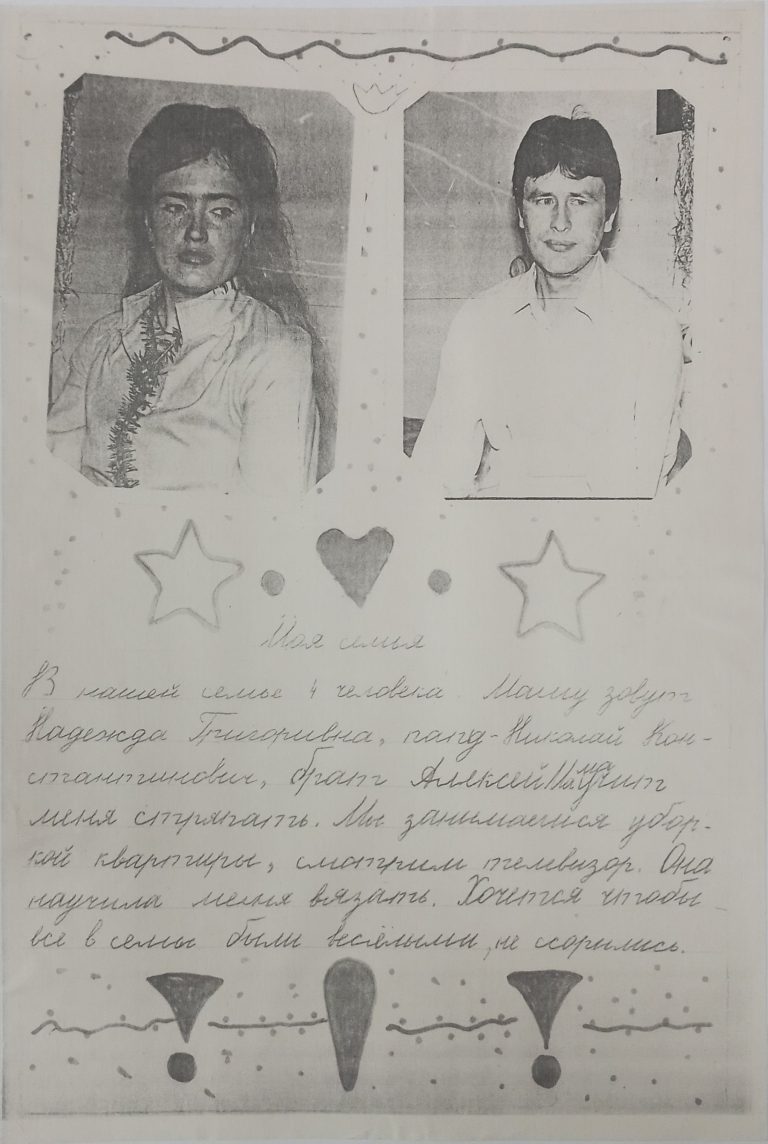 Моя семья
В нашей семье 4 человека. Маму зовут
Надежда Григоривна, папа - Николай Кон-
стантинович, брат Алексей Мама учит
меня стряпать. Мы занимаемся убор-
кой квартиры, смотрим телевизор. Она
научила меня вязать. Хочется чтобы
все в семьи были весёлыми, не ссорились.